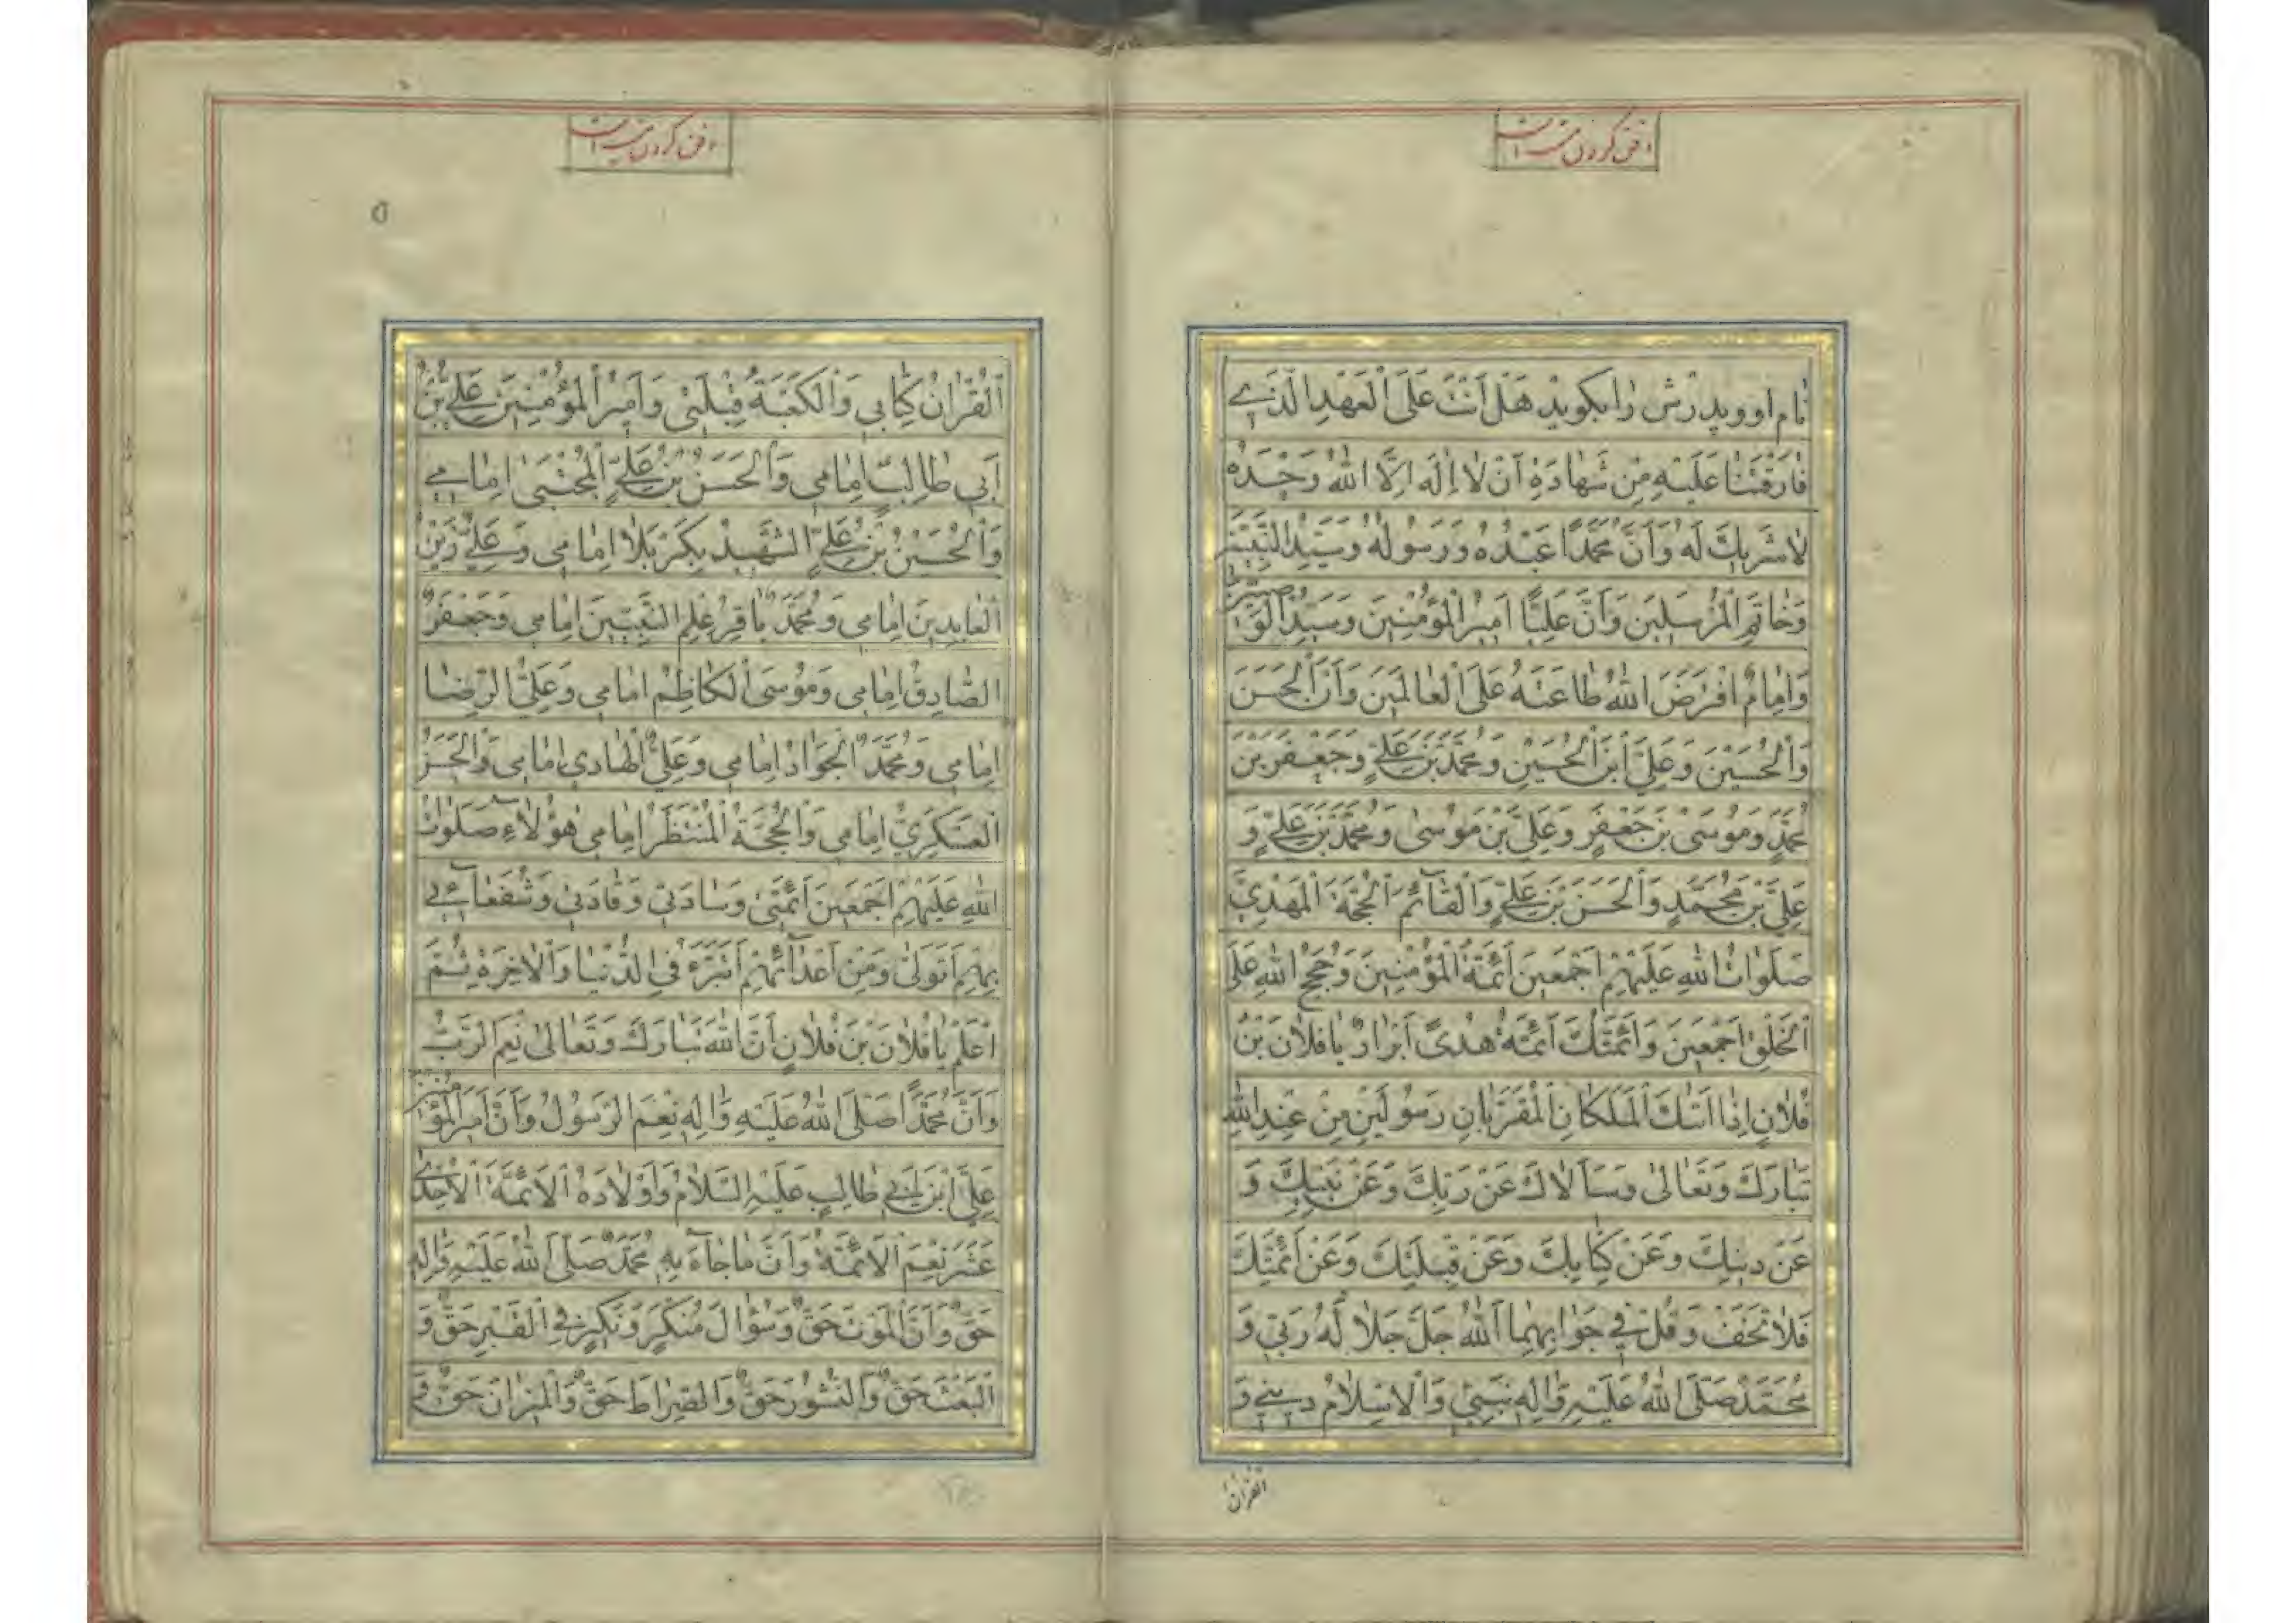 دفن کردن میت
نام او و پدرش را بکوید هَلْ اَنْتَ عَلَی الْعَهْدِ الَّذی
فارَقْتَنا عَلَیْهِ مِنْ شَهادَةِ اَنْ لا اِلهَ اِلَّا اللهُ وَحْدَهُ
لا شَریكَ لَهُ وَاَنَّ مُحَمَّدًا عَبْدُهُ وَرَسُولُهُ وَسَیِّدُ النَّبِیّینَ
وَخاتَمِ الْمُرْسَلینَ وَاَنَّ عَلِیًّا اَمیرُ الْمُؤْمِنینَ وَسَیِّدُ الْوَصِیّینَ
وَاِمامٌ افْتَرَضَ اللهُ طاعَتَهُ عَلَی الْعالَمینَ وَاَنَّ الْحَسَنَ
وَالْحُسَیْنَ وَعَلِیَّ ابْنَ الْحُسَیْنِ وَمُحَمَّدَ بْنَ عَلِیٍّ وَجَعْفَرَ بْنَ
مُحَمَّدٍ وَمُوسَی بْنَ جَعْفَرٍ وَعَلِیَّ بْنَ مُوسی وَمُحَمَّدَ بْنَ عَلِیٍّ وَ
عَلِیَّ بْنَ مُحَمَّدٍ وَالْحَسَنَ بْنَ عَلِیٍّ وَالْقآئِمَ الْحُجَّةَ الْمَهْدِیَّ
صَلَواتُ اللهِ عَلَیْهِمْ اَجْمَعینَ اَئِمَّةُ الْمُؤْمِنینَ وَحُجَجُ اللهِ عَلَی
الْخَلْقِ اَجْمَعینَ وَاَئِمَّتُكَ اَئِمَّةُ هُدیً اَبْرارٌ یا فُلانَ بْنَ
فُلانٍ اِذا اَتاكَ الْمَلَكانِ الْمُقَرَّبانِ رَسُولَیْنِ مِنْ عِنْدِ اللهِ
تَبارَكَ وَتَعالی وَسَاَلاكَ عَنْ رَبِّكَ وَعَنْ نَبِیِّكَ وَ
عَنْ دینِكَ وَعَنْ كِتابِكَ وَعَنْ قِبْلَتِكَ وَعَنْ اَئِمَّتِكَ
فَلا تَخَفْ وَقُلْ فی جَوابِهِما اَللهُ جَلَّ جَلالُهُ رَبّی وَ
مُحَمَّدٌ صَلَّی اللهُ عَلَیْهِ وَالِهِ نَبِیّی وَالْاِسْلامُ دینی وَ
القرآن
دفن کردن میت
اَلْقُرْانُ كِتابی وَالْكَعْبَةُ قِبْلَتی وَاَمیرُ الْمُؤْمِنینَ عَلِیُّ بْنُ
اَبی طالِبٍ اِمامی وَالْحَسَنُ بْنُ عَلِیٍّ الْمُجْتَبی اِمامی
وَالْحُسَیْنُ بْنُ عَلِیٍّ الشَّهیدُ بِكَرْبَلا اِمامی وَعَلِیٌّ زَیْنُ
الْعابِدینَ اِمامی وَمُحَمَّدٌ باقِرُ عِلْمِ النَّبِیّینَ اِمامی وَجَعْفَرٌ
الصّادِقُ اِمامی وَمُوسَی الْكاظِمُ اِمامی وَعَلِیٌّ الرِّضا
اِمامی وَمُحَمَّدٌ الْجَوادُ اِمامی وَعَلِیٌّ الْهادی اِمامی وَالْحَسَنُ
الْعَسْكَرِیُّ اِمامی وَالْحُجَّةُ الْمُنْتَظَرُ اِمامی هؤُلاءِ صَلَواتُ
اللهِ عَلَیْهِمْ اَجْمَعینَ اَئِمَّتی وَسادَتی وَقادَتی وَشُفَعآئی
بِهِمْ اَتَوَلّی وَمِنْ اَعْدآئِهِمْ اَتَبَرَّءُ فِی الدُّنْیا وَالْاخِرَةِ ثُمَّ
اعْلَمْ یا فُلانَ بْنَ فُلانٍ اَنَّ اللهَ تَبارَكَ وَتَعالی نِعْمَ الرَّبُّ
وَاَنَّ مُحَمَّدًا صَلَّی اللهُ عَلَیْهِ وَالِهِ نِعْمَ الرَّسُولُ وَاَنَّ اَمیرَ الْمُؤْمِنینَ
عَلِیَّ ابْنَ اَبی طالِبٍ عَلَیْهِ السَّلامُ وَاَوْلادَهُ الْاَئِمَّةَ الْاَحَدَ
عَشَرَ نِعْمَ الْاَئِمَّةُ وَاَنَّ ما جآءَ بِهِ مُحَمَّدٌ صَلَّی اللهُ عَلَیْهِ وَالِهِ
حَقٌّ وَاَنَّ الْمَوْتَ حَقٌّ وَسُؤالَ مُنْكَرٍ وَنَكیرٍ فِی الْقَبْرِ حَقٌّ وَ
الْبَعْثَ حَقٌّ وَالنُّشُورَ حَقٌّ وَالصِّراطَ حَقٌّ وَالْمیزانَ حَقٌّ وَ